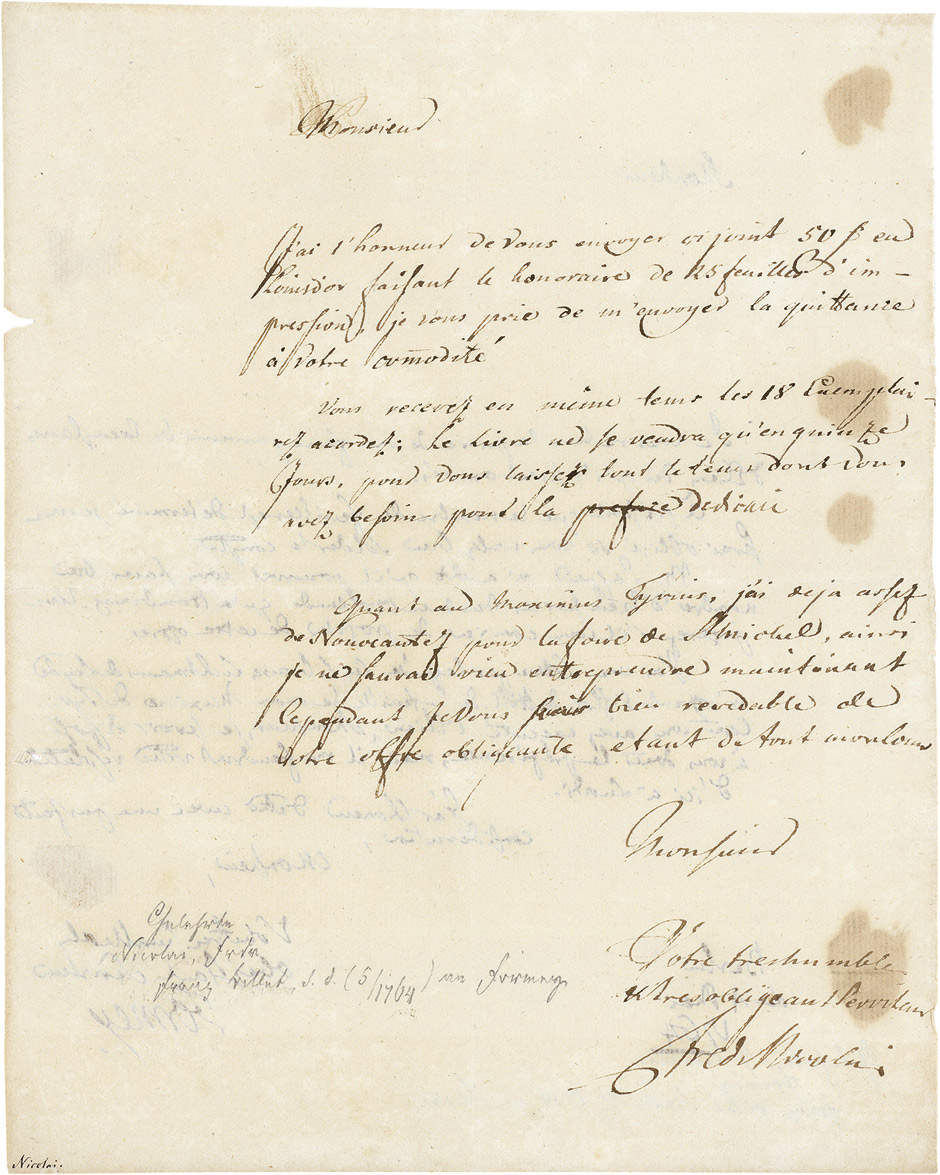 Monsieur
J'ai l'honneur de vous envoyer ci joint 50 en
Louisdor faisant le honoraire de 25 feuilles d'im-
pression, je vous prie de m'envoyer la quittance
à Votre comodité
Vous recevez en même tems les 18 Exemplai-
rez acordez; Le Livre ne se vendra qu'en quinze
Jours, pour Vous laisser tout le tems dont Vous
avez besoin pour la preface dedicace
Quant au Maximus Tyrius, j'ai deja assez
de Nouveautez pour la foire de St Michel, ainsi
je ne saurai rien entreprendre maintenant
Cependant Je Vous bien redevable de
Votre offre obligeante etant de tout mon
Monsieur
Votre treshumble
& tresobligeant Serviteur
Fred Nicolai
Gelehrte
Nicolai, Frdr.
franz Billet, s. d. (5/1764) an Formey
Nicolai.